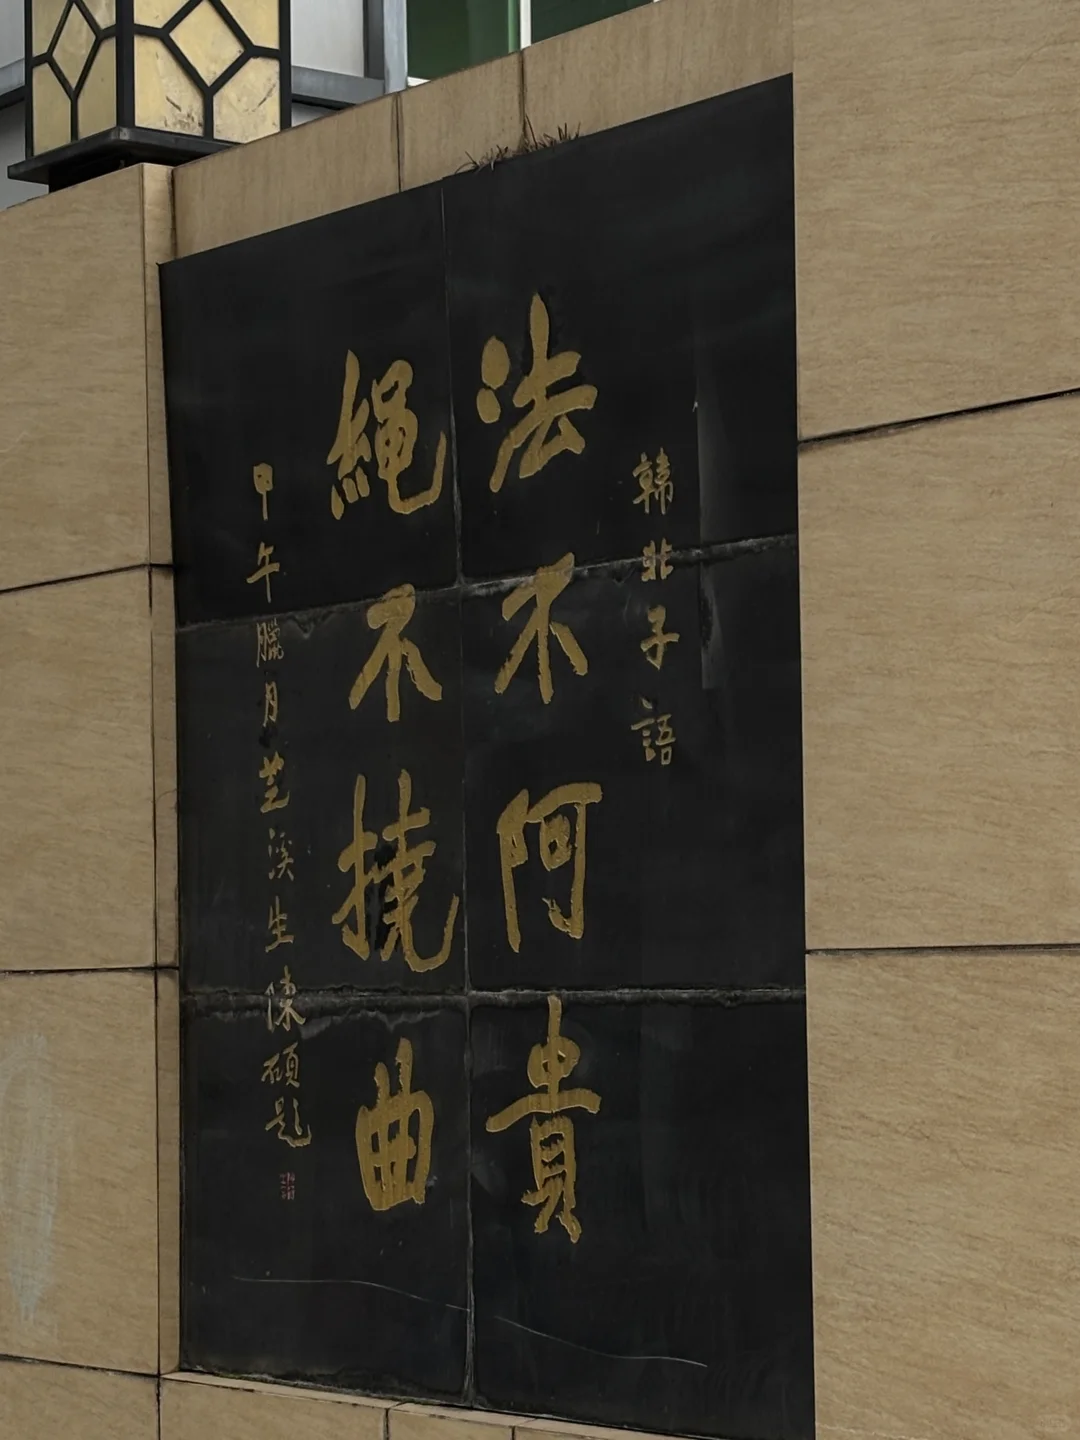 韓非子語
法不阿貴
繩不撓曲
甲午臘月芝溪生陳碩題